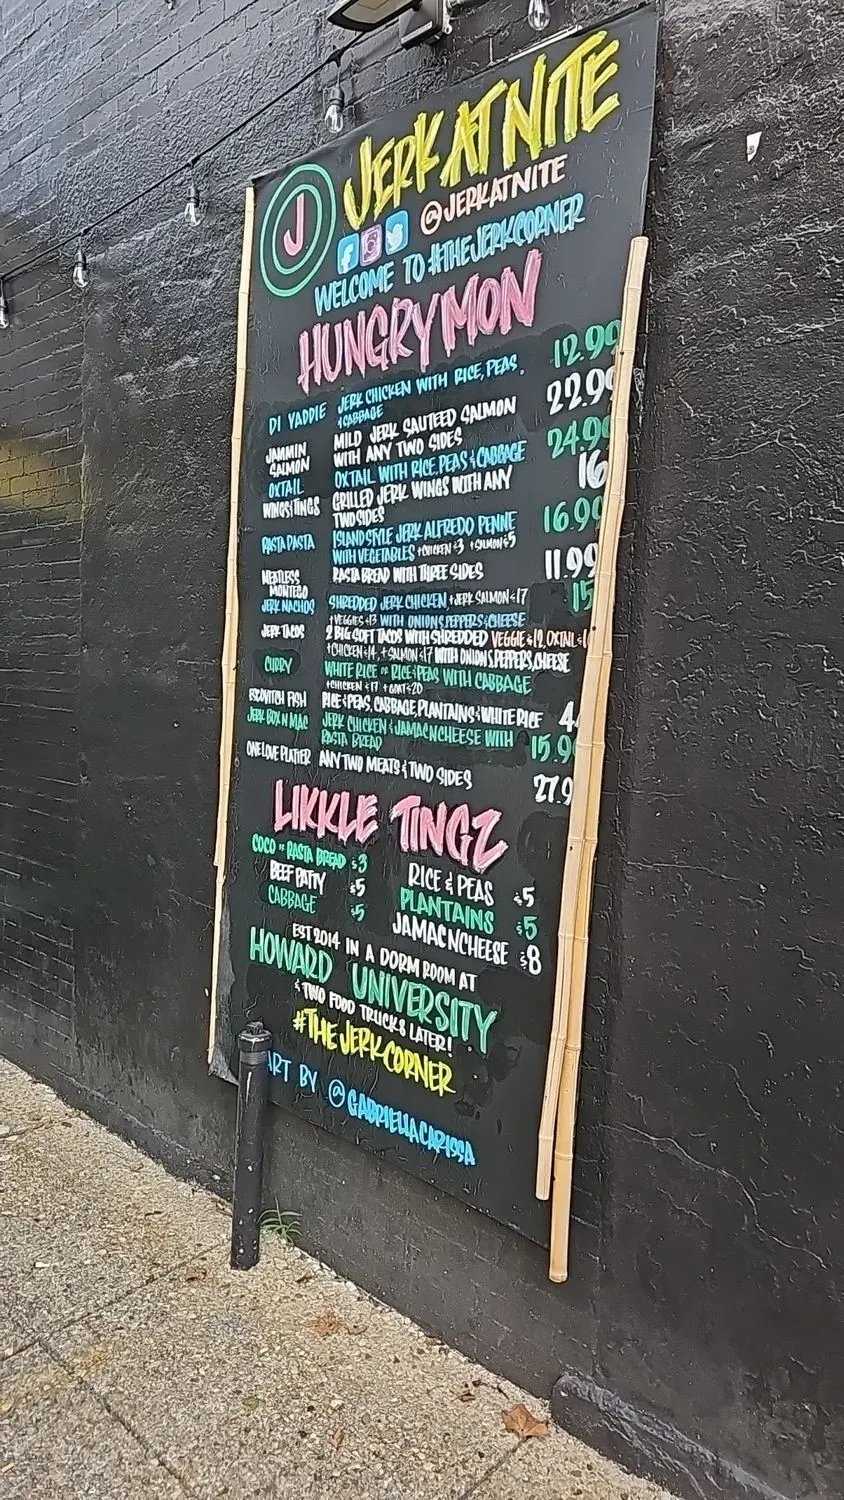 J
JERK AT NITE
@JERKATNITE
WELCOME TO #THEJERKCORNER
HUNGRY MON
DI YADDIE JERK CHICKEN WITH RICE, PEAS, & CABBAGE 12.99
JAMMIN SALMON MILD JERK SAUTEED SALMON WITH ANY TWO SIDES 22.99
OXTAIL OXTAIL WITH RICE, PEAS & CABBAGE 24.99
WINGS & TINGS GRILLED JERK WINGS WITH ANY TWO SIDES 16
RASTA PASTA ISLAND STYLE JERK ALFREDO PENNE WITH VEGETABLES +CHICKEN $3 +SALMON $5 16.99
MEATLESS MONTEGO RASTA BREAD WITH THREE SIDES 11.99
JERK NACHOS SHREDDED JERK CHICKEN +JERK SALMON $17 +VEGGIES $13 WITH ONIONS, PEPPERS & CHEESE 15
JERK TACOS 2 BIG SOFT TACOS WITH SHREDDED VEGGIE $12, OXTAIL $1
+CHICKEN $14, +SALMON $17 WITH ONIONS, PEPPERS, CHEESE
CURRY WHITE RICE OR RICE & PEAS WITH CABBAGE
+CHICKEN $17 +GOAT $20
ESCOVITCH FISH RICE & PEAS, CABBAGE, PLANTAINS & WHITE RICE 4
JERK BOX N MAC JERK CHICKEN & JAMACNCHEESE WITH RASTA BREAD 15.9
ONE LOVE PLATTER ANY TWO MEATS & TWO SIDES 27.9
LIKKLE TINGZ
COCO OR RASTA BREAD $3
BEEF PATTY $5
CABBAGE $5
RICE & PEAS $5
PLANTAINS $5
JAMACNCHEESE $8
EST 2014 IN A DORM ROOM AT
HOWARD UNIVERSITY
& TWO FOOD TRUCKS LATER!
#THEJERKCORNER
ART BY @GABRIELLACARISSA